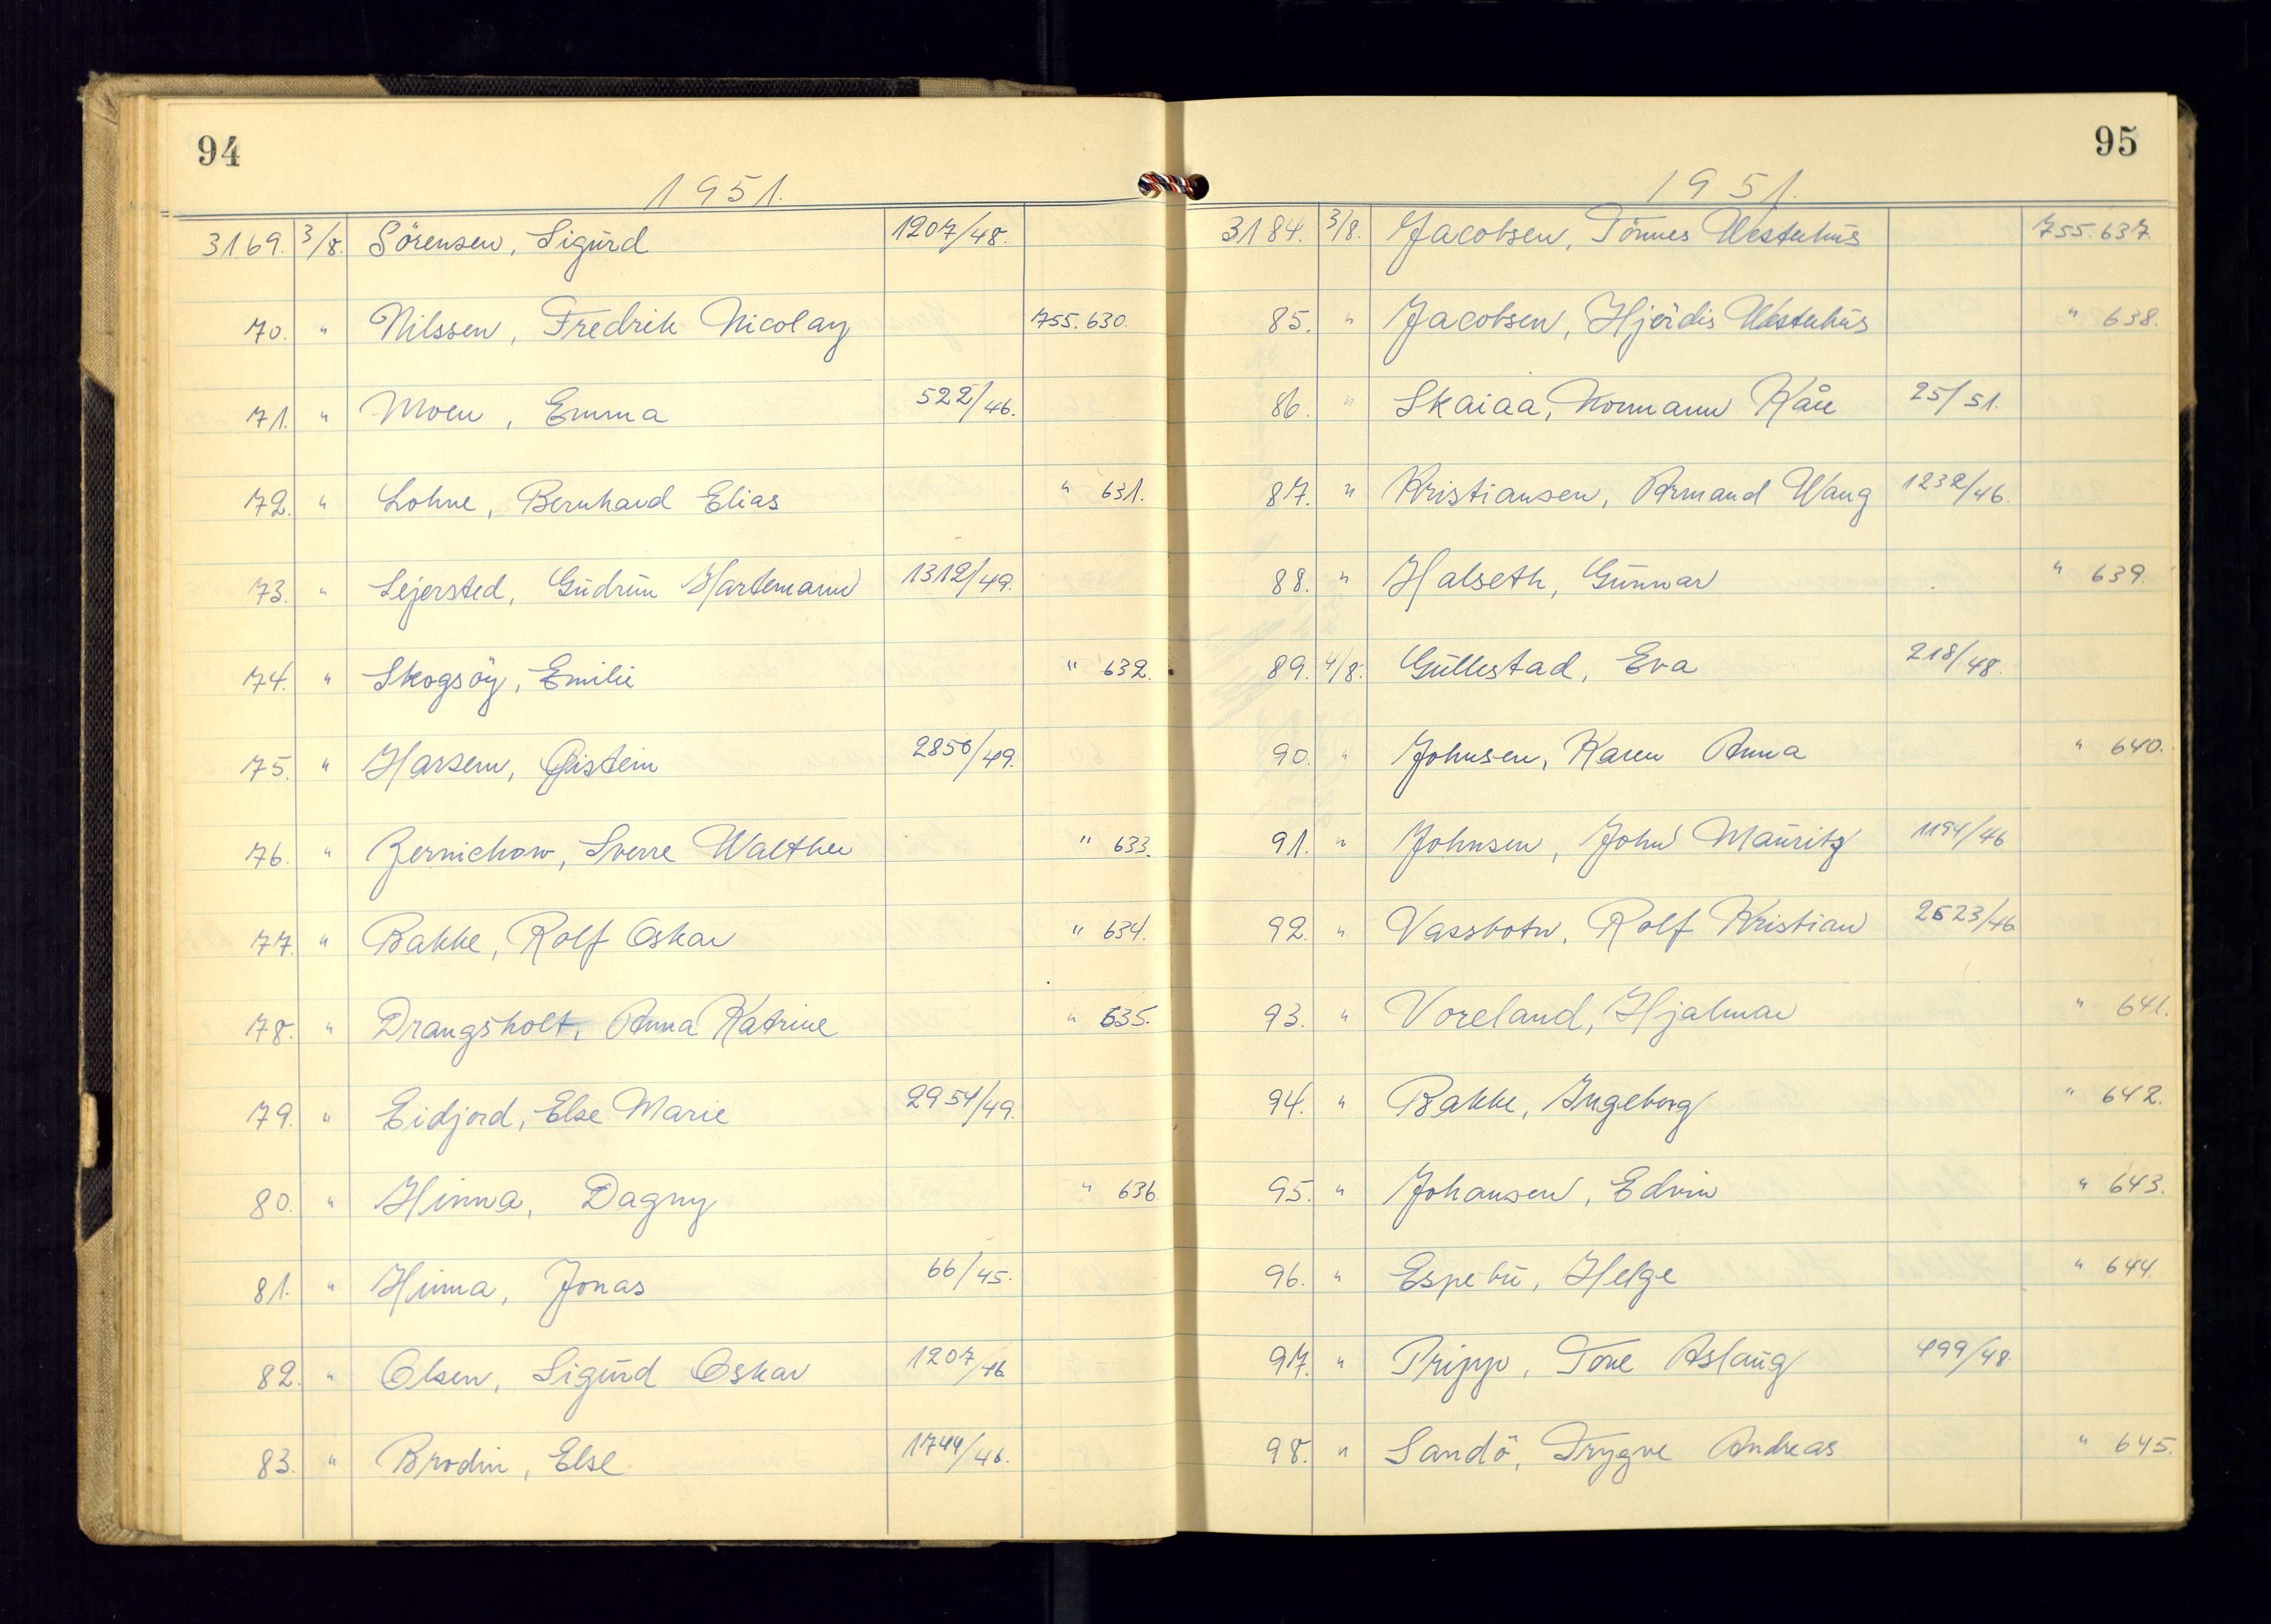 94
1951.
3169. 3/8. Sörensen, Sigurd 1207/48.
70. " Nilssen, Fredrik Nicolay 755.630.
71. " Moen, Emma 522/46.
72. " Lohne, Bernhard Elias " 631.
73. " Lejersted, Gudrun Hartemann 1312/49.
74. " Skogsöy, Emilie " 632.
75. " Harsem, Øistein 2856/49.
76. " Zernichow, Sverre Walther " 633.
77. " Bakke, Rolf Oskar " 634.
78. " Drangsholt, Anna Katrine " 635.
79. " Eidjord, Else Marie 2954/49.
80. " Hinna, Dagny " 636.
81. " Hinna, Jonas 66/45.
82. " Olsen, Sigurd Oskar 1207/46
83. " Brodin, Else 1744/46.
95
1951.
3184. 3/8. Jacobsen, Tönnes Westerhus 755.637.
85. " Jacobsen, Hjördis Westerhus " 638.
86. " Skaiaa, Normann Kåre 25/51.
87. " Kristiansen, Armand Wang 1232/46.
88. " Halseth, Gunnar " 639.
89. 4/8. Gullestad, Eva 218/48.
90. " Johnsen, Karen Anna " 640.
91. " Johnsen, John Mauritz 1194/46
92. " Vassbotn, Rolf Kristian 2623/46
93. " Voreland, Hjalmar " 641.
94. " Bakke, Ingeborg " 642.
95. " Johansen, Edvin " 643.
96. " Espebu, Helge " 644.
97. " Pripp, Tone Aslaug 499/48.
98. " Sandö, Trygve Andreas " 645.